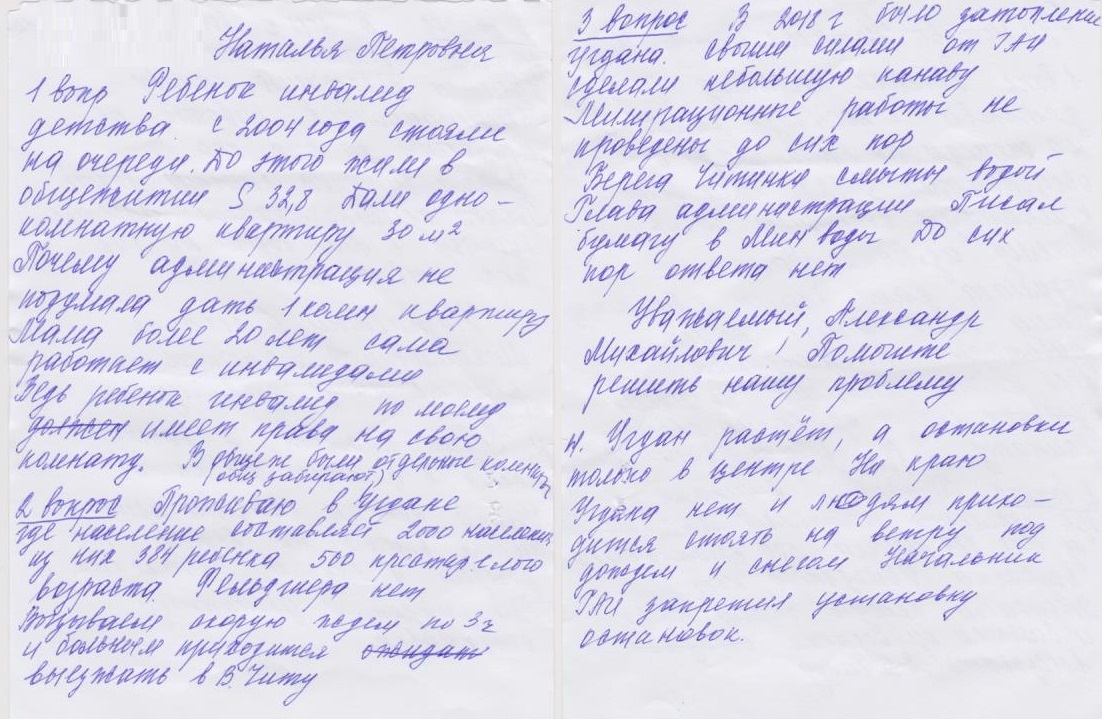 Наталья Петровна
1 вопр Ребенок инвалид
детства. с 2004 года стояли
на очереди. До этого жили в
общежитии S 32,8 Дали одно-
комнатную квартиру 30 м²
Почему администрация не
подумала дать 1 комн квартиру
Мама более 20 лет сама
работает с инвалидами
Ведь ребенок инвалид по моему
должен имеет права на свою
комнату. В общеж были отдельные комнаты
(общ забирают)
2 вопрос Проживаю в Угдане
где население составляет 2000 населения
из них 384 ребенка 500 престарелого
возраста. Фельдшера нет
Вызываем скорую ждем по 3 ч
и больным приходится ожидать
выезжать в В. Читу
3 вопрос В 2018 г было затопление
Угдана. своими силами от ГАИ
сделали небольшую канаву
Милирационные работы не
проведены до сих пор
Берега Читинки смыты водой
Глава администрации Писал
бумагу в Мин воды До сих
пор ответа нет
Уважаемый, Александр
Михайлович! Помогите
решить нашу проблему
4. Угдан растёт, а остановки
только в центре На краю
Угдана нет и людям прихо-
дится стоять на ветру под
дождем и снегом Начальник
ГАИ запретил установку
остановок.